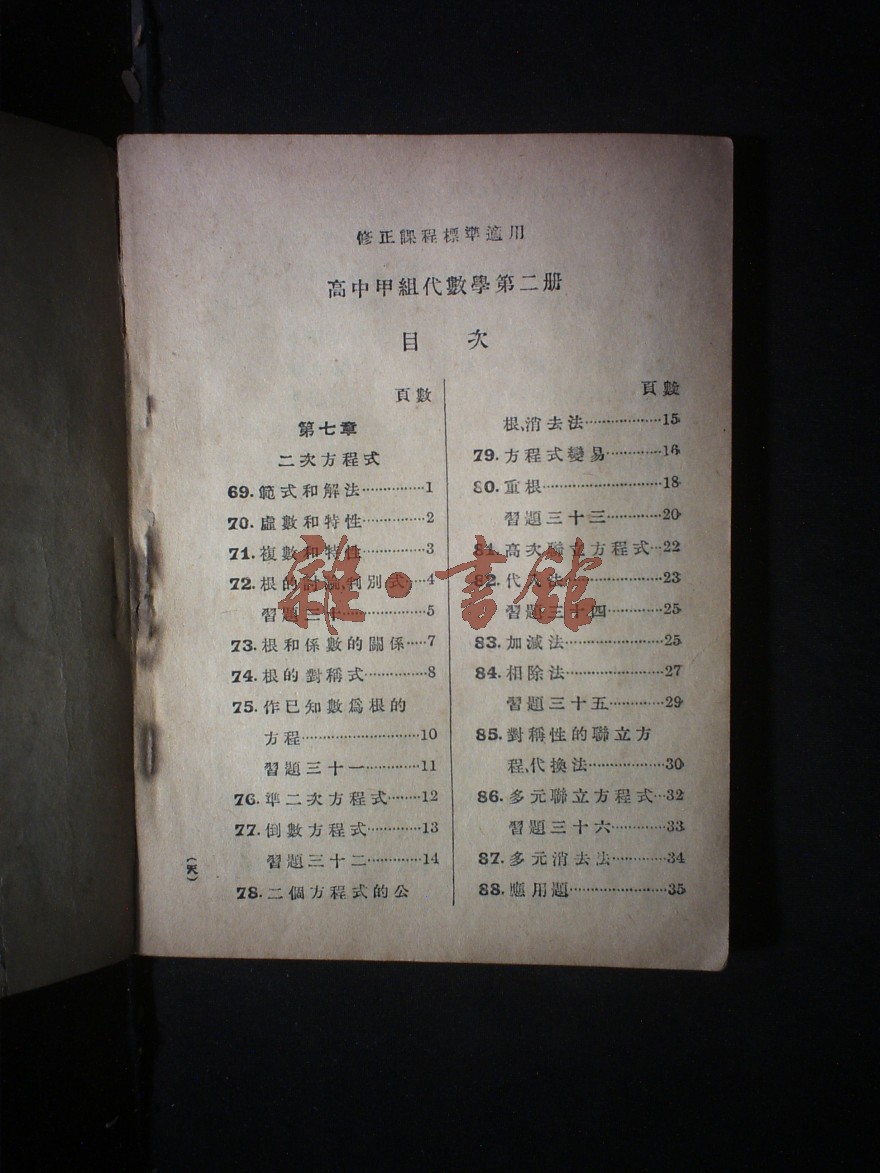 修正課程標準適用
高中甲組代數學第二册
目 次
頁數
第七章
二次方程式
69. 範式和解法……………1
70. 虛數和特性……………2
71. 複數和特性……………3
72. 根的討論、判別式…4
習題三十………………5
73. 根和係數的關係……7
74. 根的對稱式……………8
75. 作已知數爲根的
方程………………………10
習題三十一……………11
76. 準二次方程式………12
77. 倒數方程式……………13
習題三十二……………14
78. 二個方程式的公
(天)
頁數
根、消去法………………15
79. 方程式變易……………16
80. 重根………………………18
習題三十三……………20
81. 高次聯立方程式…22
82. 代入法…………………23
習題三十四……………25
83. 加減法…………………25
84. 相除法…………………27
習題三十五……………29
85. 對稱性的聯立方
程、代換法………………30
86. 多元聯立方程式…32
習題三十六……………33
87. 多元消去法……………34
88. 應用題…………………35
雜·書館